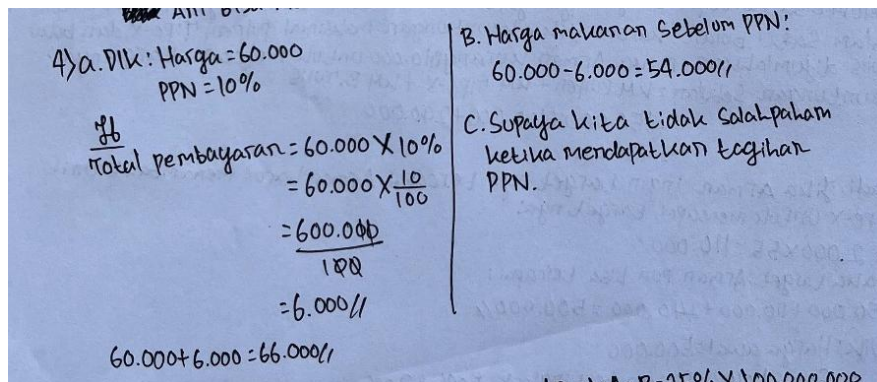 4) a. Dik: Harga = 60.000
PPN = 10%
Jb
Total pembayaran = 60.000 X 10%
= 60.000 X 10/100
= 600.000
100
= 6.000//
60.000 + 6.000 = 66.000//
B. Harga makanan Sebelum PPN:
60.000 - 6.000 = 54.000//
C. Supaya kita tidak Salahpaham
ketika mendapatkan tagihan
PPN.